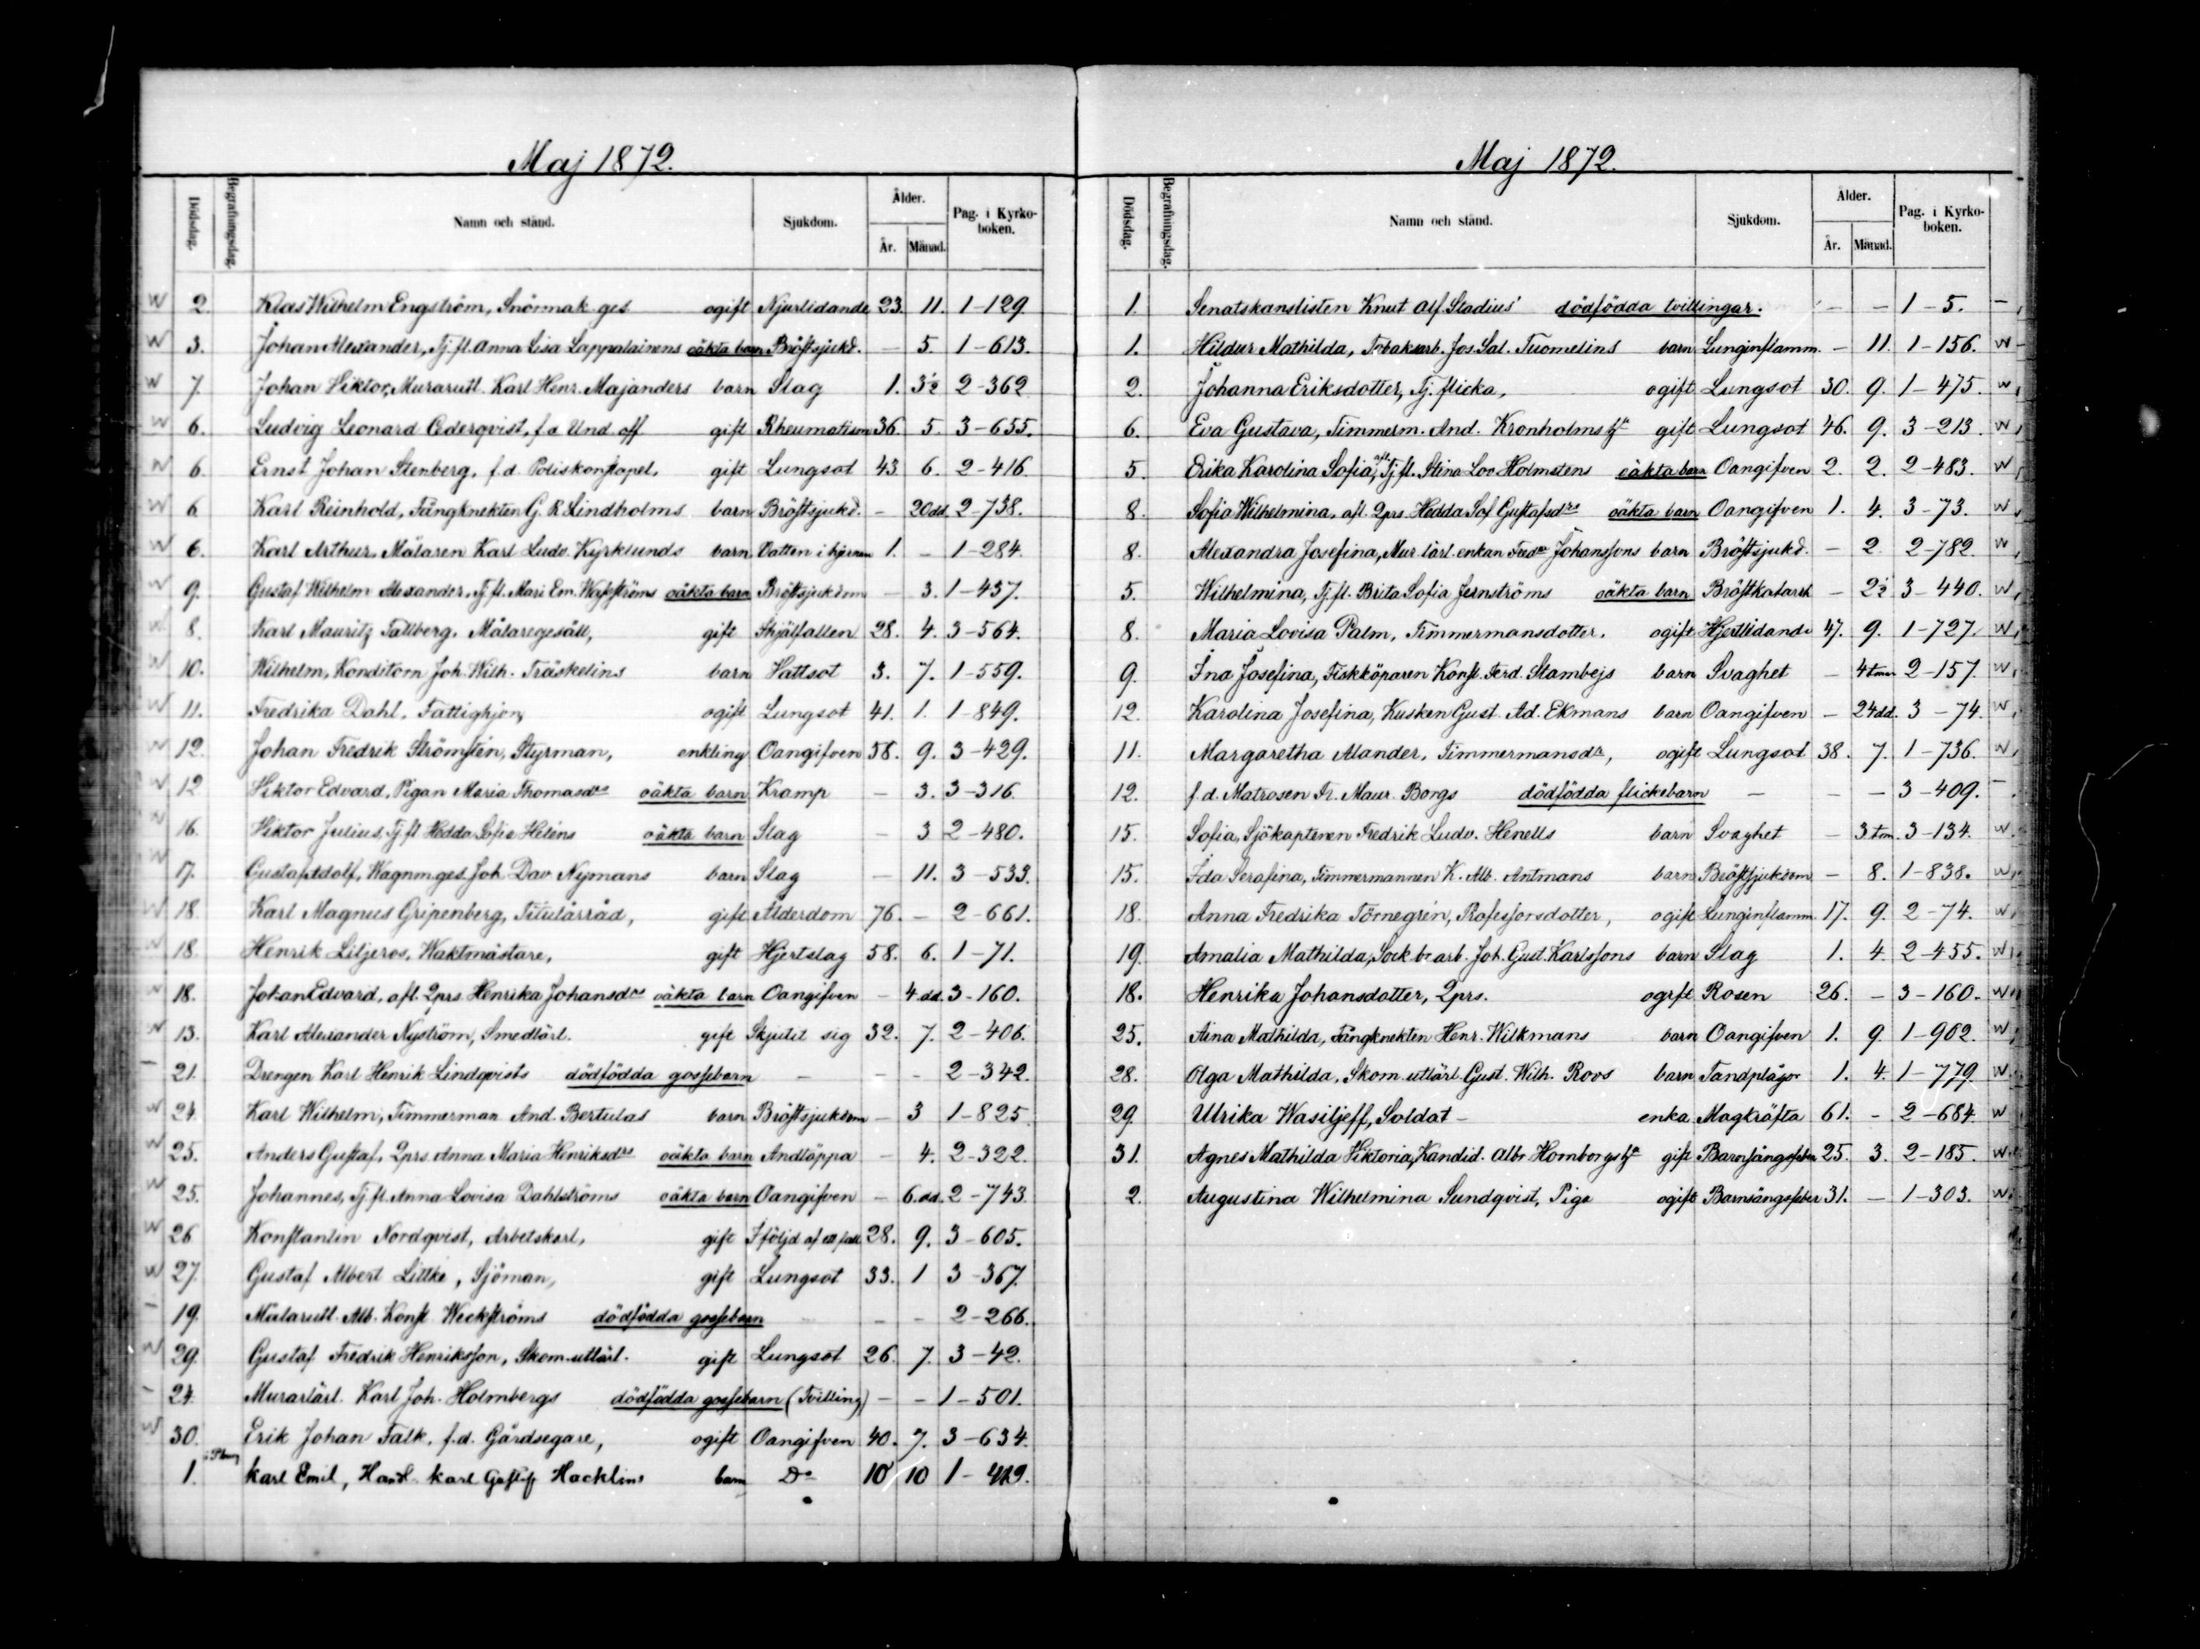 Maj 1872.
Dödsdag. Begrafningsdag. Namn och stånd. Sjukdom. Ålder. År. Månad. Pag. i Kyrkoboken.
W 2. Klas Wilhelm Engström, Snörmak ges ogift Njurlidande 23. 11. 1-129.
W 3. Johan Alexander, Tj. fl. Anna Lisa Lappalainens oäkta barn Bröstsjukd. - 5. 1-613.
W 7. Johan Viktor, Murarutl. Karl Henr. Majanders barn Slag 1. 3½ 2-362
W 6. Ludvig Leonard Cederqvist, f.d. Und. off gift Rheumatism 36. 5. 3-655.
W 6. Ernst Johan Stenberg, f.d. Poliskonstapel, gift Lungsot 43 6. 2-416.
W 6. Karl Reinhold, Fångknekten G. R. Lindholms barn Bröstsjukd. - 20 dd. 2-738.
W 6. Karl Arthur, Målaren Karl Ludv. Kyrklunds barn Vatten i hjernan 1. - 1-284.
W 9. Gustaf Wilhelm Alexander, Tj. fl. Mari Em. Wafströms oäkta barn Bröstsjukdom - 3. 1-457.
W 8. Karl Mauritz Tallberg, Målaregesäll, gift Ihjälfallen 28. 4. 3-564.
W 10. Wilhelm, Konditorn Joh. Wilh. Träskelins barn Hattsot 3. 7. 1-559.
W 11. Fredrika Dahl, Fattighjon, ogift Lungsot 41. 1. 1-849.
W 12. Johan Fredrik Strömstén, Styrman, enkling Oangifven 58. 9. 3-429.
W 12 Viktor Edvard, Pigan Maria Thomasdrs oäkta barn Kramp - 3. 3-316.
W 16. Viktor Julius, Tj. fl Hedda Sofia Heléns oäkta barn Slag - 3 2-480.
W 17. Gustaf Adolf, Wagnm.ges. Joh. Dav. Nymans barn Slag - 11. 3-533.
W 18. Karl Magnus Gripenberg, Titulärråd, gift Ålderdom 76. - 2-661.
W 18. Henrik Liljeros, Waktmästare, gift Hjertslag 58. 6. 1-71.
W 18. Johan Edvard, afl. 2prs. Henrika Johansdrs oäkta barn Oangifven - 4. dd. 3-160.
W 13. Karl Alexander Nyström, Smedlärl. gift Skjutit sig 32. 7. 2-406.
- 21. Drengen Karl Henrik Lindqvists dödfödda gossebarn - - - 2-342.
W 24. Karl Wilhelm, Timmerman And. Bertulas barn Bröstsjukdom - 3 1-825
W 25. Anders Gustaf, 2prs. Anna Maria Henriksdrs oäkta barn Andtäppa - 4. 2-322.
W 25. Johannes, Tj. fl. Anna Lovisa Dahlströms oäkta barn Oangifven - 6. dd. 2-743.
W 26 Konstantin Nordqvist, Arbetskarl, gift I följd af ett fall. 28. 9. 3-605.
W 27. Gustaf Albert Littke, Sjöman, gift Lungsot 33. 1 3-367.
- 19. Målarutl. Alb. Konst. Weckströms dödfödda gossebarn - - 2-266.
W 29. Gustaf Fredrik Henriksson, Skom-utlärl. gift Lungsot 26. 7. 3-42.
- 24. Murarlärl. Karl Joh. Holmbergs dödfödda gossebarn (Tvilling) - - 1-501.
W 30. Erik Johan Falk, f.d. Gårdsegare, ogift Oangifven 40. 7. 3-634.
1. Karl Emil, Handl. Karl Gustaf Hacklins barn Do 10 10 1-
Maj 1872.
Dödsdag. Begrafningsdag. Namn och stånd. Sjukdom. Ålder. År. Månad. Pag. i Kyrkoboken.
1. Senatskanslisten Knut Alf. Stadius' dödfödda tvillingar. - - 1-5. -
1. Hildur Mathilda, Tobaksarb. Jos. Sal. Tuomelins barn Lunginflamm. - 11. 1-156. W
2. Johanna Eriksdotter, Tj. flicka, ogift Lungsot 30. 9. 1-475. W
6. Eva Gustava, Timmerm. And. Kronholms gift Lungsot 46. 9. 3-213. W
5. Erika Karolina Sofia, afl. Tj. fl. Stina Lov. Holmstens oäkta barn Oangifven 2. 2. 2-483. W
8. Sofia Wilhelmina, afl. 2prs. Hedda Sof. Gustafsdrs oäkta barn Oangifven 1. 4. 3-73. W
8. Alexandra Josefina, Mur. lärl. enkan Fredr. Johanssons barn Bröstsjukd. - 2. 2-782. W
5. Wilhelmina, Tj. fl. Brita Sofia Jernströms oäkta barn Bröstkatarrh - 2½ 3-440. W
8. Maria Lovisa Palm, Timmermansdotter. ogift Hjertlidande 47. 9. 1-727. W
9. Ina Josefina, Fiskköparen Konst. Ferd. Stambejs barn Svaghet - 4 tmr 2-157. W
12. Karolina Josefina, Kusken Gust. Ad. Ekmans barn Oangifven - 24 dd. 3-74. W
11. Margaretha Alander, Timmermansdr, ogift Lungsot 38. 7. 1-736. W
12. f.d. Matrosen Fr. Maur. Borgs dödfödda flickebarn - - - 3-409. -
15. Sofia, Sjökaptenen Fredrik Ludv. Henells barn Svaghet - 3 tm. 3-134. W
15. Ida Serafina, Timmermannen K. Alb. Antmans barn Bröstsjukdom - 8. 1-838. W
18. Anna Fredrika Törnegrén, Professorsdotter, ogift Lunginflamm. 17. 9. 2-74. W
19. Amalia Mathilda, Sock.br.arb. Joh. Gust. Karlssons barn Slag 1. 4. 2-455. W
18. Henrika Johansdotter, 2prs. ogift Rosen 26. - 3-160. W
25. Aina Mathilda, Fångknekten Henr. Wilkmans barn Oangifven 1. 9. 1-902. W
28. Olga Mathilda, Skom. utlärl. Gust. Wilh. Roos barn Tandplågor 1. 4. 1-779. W
29. Ulrika Wasiljeff, Soldat- enka Magkräfta 61. - 2-684. W
31. Agnes Mathilda Viktoria, Kandid. Albr. Homborgs gift Barnsängsfeber 25. 3. 2-185. W
2. Augustina Wilhelmina Sundqvist, Piga ogift Barnsängsfeber 31. - 1-303. W